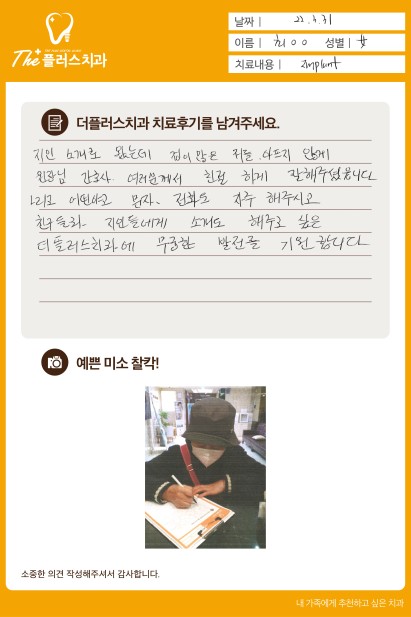 The 플러스치과
날짜 | 22. 3. 31
이름 | 최OO 성별 | 女
치료내용 | Implant
더플러스치과 치료후기를 남겨주세요.
지인 소개로 왔는데 겁이 많은 저를 아프지 않게
원장님 간호사. 여러분께서 친절 하게 잘해주셨습니다
그리고 어떤가고 문자. 전화도 자주 해주시고
친구들과. 지인들에게 소개도 해주고 싶은
더플러스치과에 무궁한 발전을 기원합니다
예쁜 미소 찰칵!
소중한 의견 작성해주셔서 감사합니다.
내 가족에게 추천하고 싶은 치과